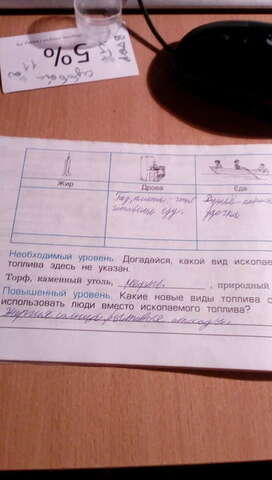 5%
Жир
Дрова
Еда
Газ, плита - чтоб
готовить еду.
удочка
Необходимый уровень. Догадайся, какой вид ископае
топлива здесь не указан.
Торф, каменный уголь, нефть, природный
Повышенный уровень. Какие новые виды топлива с
использовать люди вместо ископаемого топлива?
Энергия солнца, бытовые отходы.